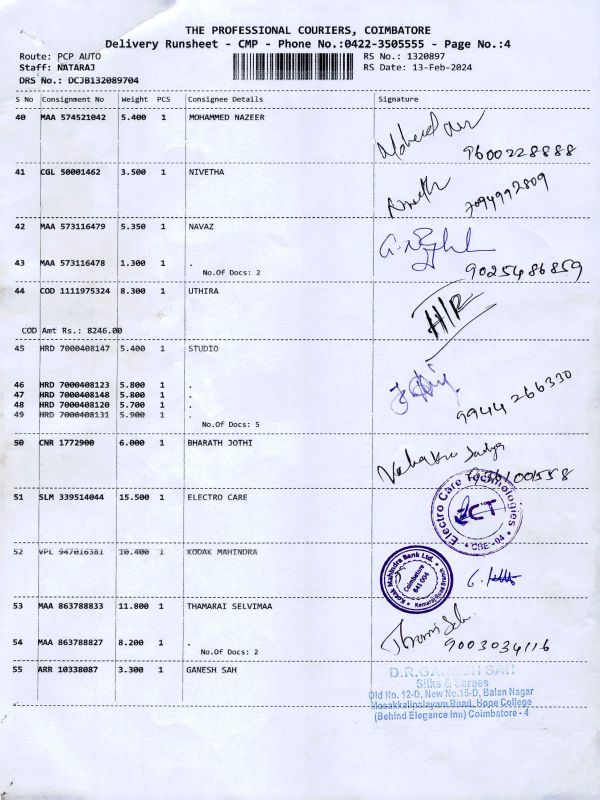 THE PROFESSIONAL COURIERS, COIMBATORE
Delivery Runsheet - CMP - Phone No.:0422-3505555 - Page No.:4
Route: PCP AUTO RS No.: 1320897
Staff: NATARAJ RS Date: 13-Feb-2024
DRS No.: DCJB132089704
S No Consignment No Weight PCS Consignee Details Signature
40 MAA 574521042 5.400 1 MOHAMMED NAZEER
9600228888
41 CGL 50001462 3.500 1 NIVETHA
Nivetha 7094992809
42 MAA 573116479 5.350 1 NAVAZ
43 MAA 573116478 1.300 1 .
No.Of Docs: 2
9025486859
44 COD 1111975324 8.300 1 UTHIRA
H/R
COD Amt Rs.: 8246.00
45 HRD 7000408147 5.400 1 STUDIO
46 HRD 7000408123 5.800 1 .
47 HRD 7000408148 5.800 1 .
48 HRD 7000408120 5.700 1 .
49 HRD 7000408131 5.900 1 .
No.Of Docs: 5
9944 266330
50 CNR 1772900 6.000 1 BHARATH JOTHI
51 SLM 339514044 15.500 1 ELECTRO CARE
Electro Care Technologies
ECT
CBE-04
52 VPL 947016381 10.400 1 KODAK MAHINDRA
Kotak Mahindra Bank Ltd.
Coimbatore
641 004
53 MAA 863788833 11.800 1 THAMARAI SELVIMAA
54 MAA 863788827 8.200 1 .
No.Of Docs: 2
9003034116
55 ARR 10338087 3.300 1 GANESH SAH
D.R.GANESH SAH
Silks & Sarees
Old No. 12-D, New No.15-D, Balan Nagar
Masakkalipalayam Road, Hope College
(Behind Elegance Inn) Coimbatore - 4